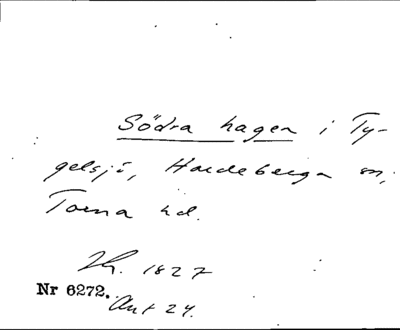 Södra hagen i Ty-
gelsjö, Hardeberga sn,
Torna hd.
1827
Nr 6272.
Akt 24.